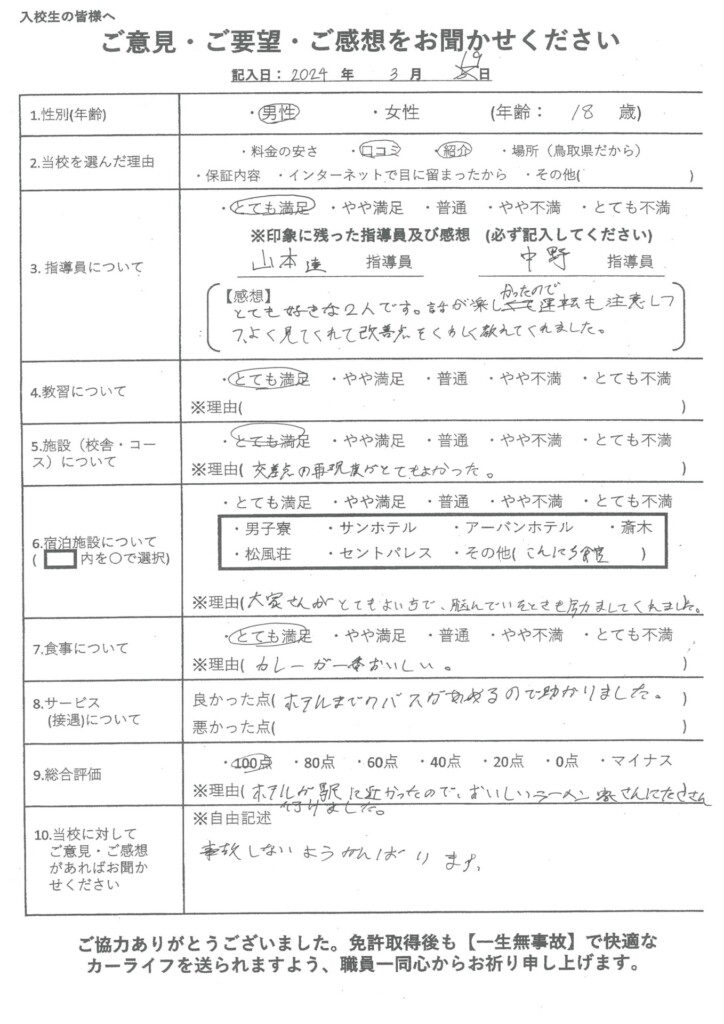 入校生の皆様へ
ご意見・ご要望・ご感想をお聞かせください
記入日: 2024 年 3 月 19日
1.性別(年齢) ・男性 ・女性 (年齢: 18 歳)
2.当校を選んだ理由 ・料金の安さ ・口コミ ・紹介 ・場所（鳥取県だから）
・保証内容 ・インターネットで目に留まったから ・その他( )
3. 指導員について ・とても満足 ・やや満足 ・普通 ・やや不満 ・とても不満
※印象に残った指導員及び感想 (必ず記入してください)
山本達 指導員 中野 指導員
【感想】
とても好きな2人です。話が楽しかったので運転も注意しつ
つ、よく見てくれて改善点をくわしく教えてくれました。
4.教習について ・とても満足 ・やや満足 ・普通 ・やや不満 ・とても不満
※理由( )
5.施設（校舎・コース）について ・とても満足 ・やや満足 ・普通 ・やや不満 ・とても不満
※理由( 交差点の再現度がとてもよかった。 )
6.宿泊施設について
( 内を〇で選択) ・とても満足 ・やや満足 ・普通 ・やや不満 ・とても不満
・男子寮 ・サンホテル ・アーバンホテル ・斎木
・松風荘 ・セントパレス ・その他( )
※理由(大家さんがとてもよい方で、悩んでいるときも励ましてくれました。
7.食事について ・とても満足 ・やや満足 ・普通 ・やや不満 ・とても不満
※理由( カレーが一番おいしい。 )
8.サービス
(接遇)について 良かった点( ホテルまでバスがあるので助かりました。 )
悪かった点( )
9.総合評価 ・100点 ・80点 ・60点 ・40点 ・20点 ・0点 ・マイナス
※理由(ホテルが駅に近かったので、おいしいラーメン屋さんにたくさん
行けました。
10.当校に対して
ご意見・ご感想
があればお聞か
せください ※自由記述
事故しないようがんばります。
ご協力ありがとうございました。免許取得後も【一生無事故】で快適な
カーライフを送られますよう、職員一同心からお祈り申し上げます。